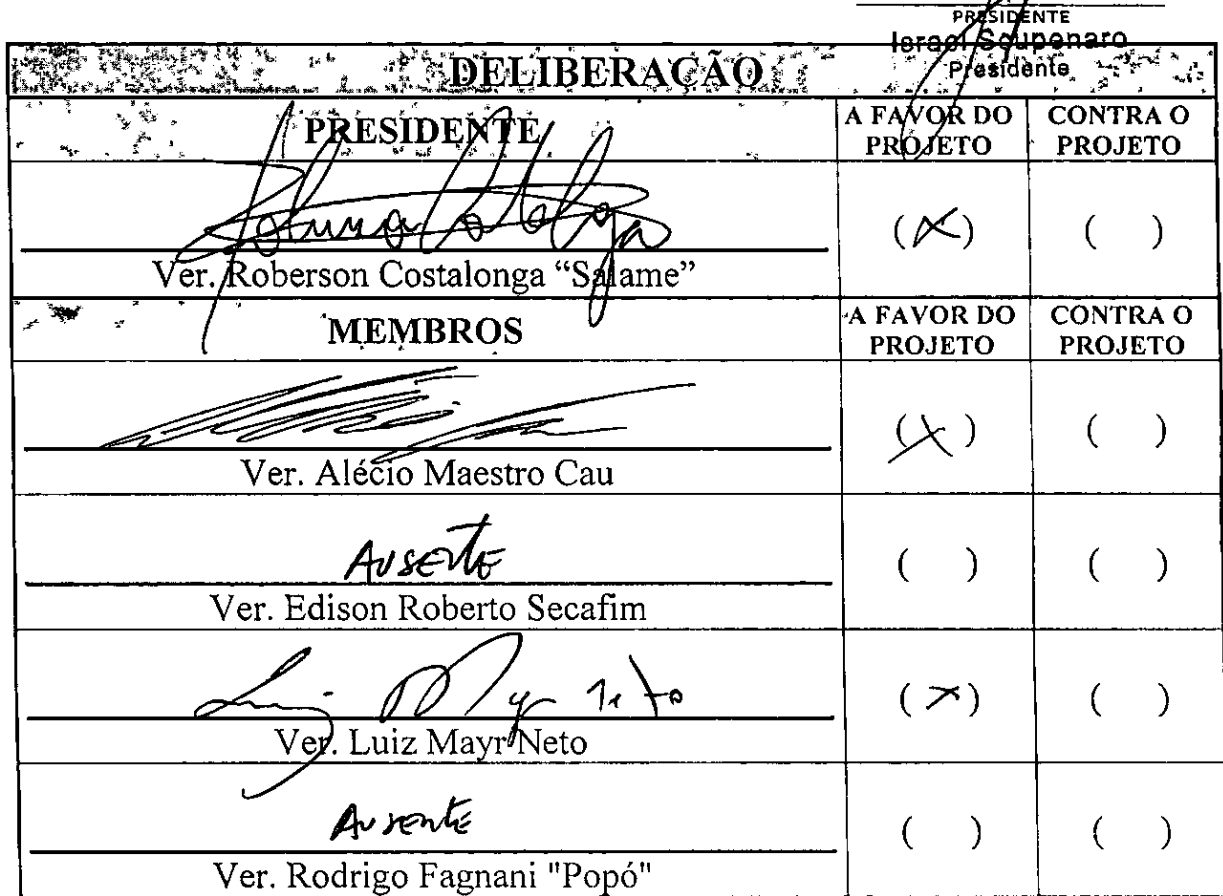 PRESIDENTE
Israel Scupenaro
Presidente
DELIBERAÇÃO
PRESIDENTE
A FAVOR DO PROJETO
CONTRA O PROJETO
(X)
( )
Ver. Roberson Costalonga “Salame”
MEMBROS
A FAVOR DO PROJETO
CONTRA O PROJETO
(X)
( )
Ver. Alécio Maestro Cau
AUSENTE
( )
( )
Ver. Edison Roberto Secafim
Luiz Mayr Neto
(X)
( )
Ver. Luiz Mayr Neto
Ausente
( )
( )
Ver. Rodrigo Fagnani "Popó"